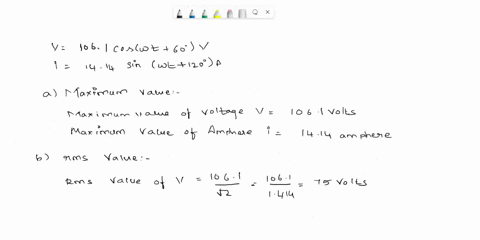 V = 106.1 cos(ωt + 60°) V
i = 14.14 sin (ωt + 120°) A
a) Maximum value:-
Maximum value of voltage V = 106.1 volts
Maximum value of Amphere i = 14.14 amphere
b) rms value:-
Rms value of V = 106.1/√2 = 106.1/1.414 = 75 volts